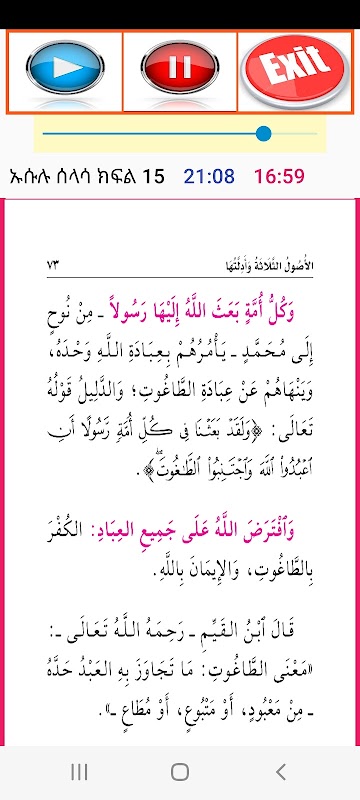 Exit
ኡሱሉ ሰላሳ ክፍል 15 21:08 16:59
الأُصُولُ الثَّلَاثَةُ وَأَدِلَّتُهَا ٧٣
وَكُلُّ أُمَّةٍ بَعَثَ اللَّهُ إِلَيْهَا رَسُولاً ـ مِنْ نُوحٍ
إِلَى مُحَمَّدٍ ـ يَأْمُرُهُمْ بِعِبَادَةِ اللَّهِ وَحْدَهُ،
وَيَنْهَاهُمْ عَنْ عِبَادَةِ الطَّاغُوتِ؛ وَالدَّلِيلُ قَوْلُهُ
تَعَالَى: ﴿وَلَقَدْ بَعَثْنَا فِي كُلِّ أُمَّةٍ رَّسُولًا أَنِ
ٱعْبُدُوا۟ ٱللَّهَ وَٱجْتَنِبُوا۟ ٱلطَّـٰغُوتَۖ﴾.
وَٱفْتَرَضَ اللَّهُ عَلَى جَمِيعِ العِبَادِ: الكُفْرَ
بِالطَّاغُوتِ، وَالإِيمَانَ بِاللَّهِ.
قَالَ ٱبْنُ القَيِّمِ ـ رَحِمَهُ اللَّهُ تَعَالَى ـ:
«مَعْنَى الطَّاغُوتِ: مَا تَجَاوَزَ بِهِ العَبْدُ حَدَّهُ
ـ مِنْ مَعْبُودٍ، أَوْ مَتْبُوعٍ، أَوْ مُطَاعٍ ـ».